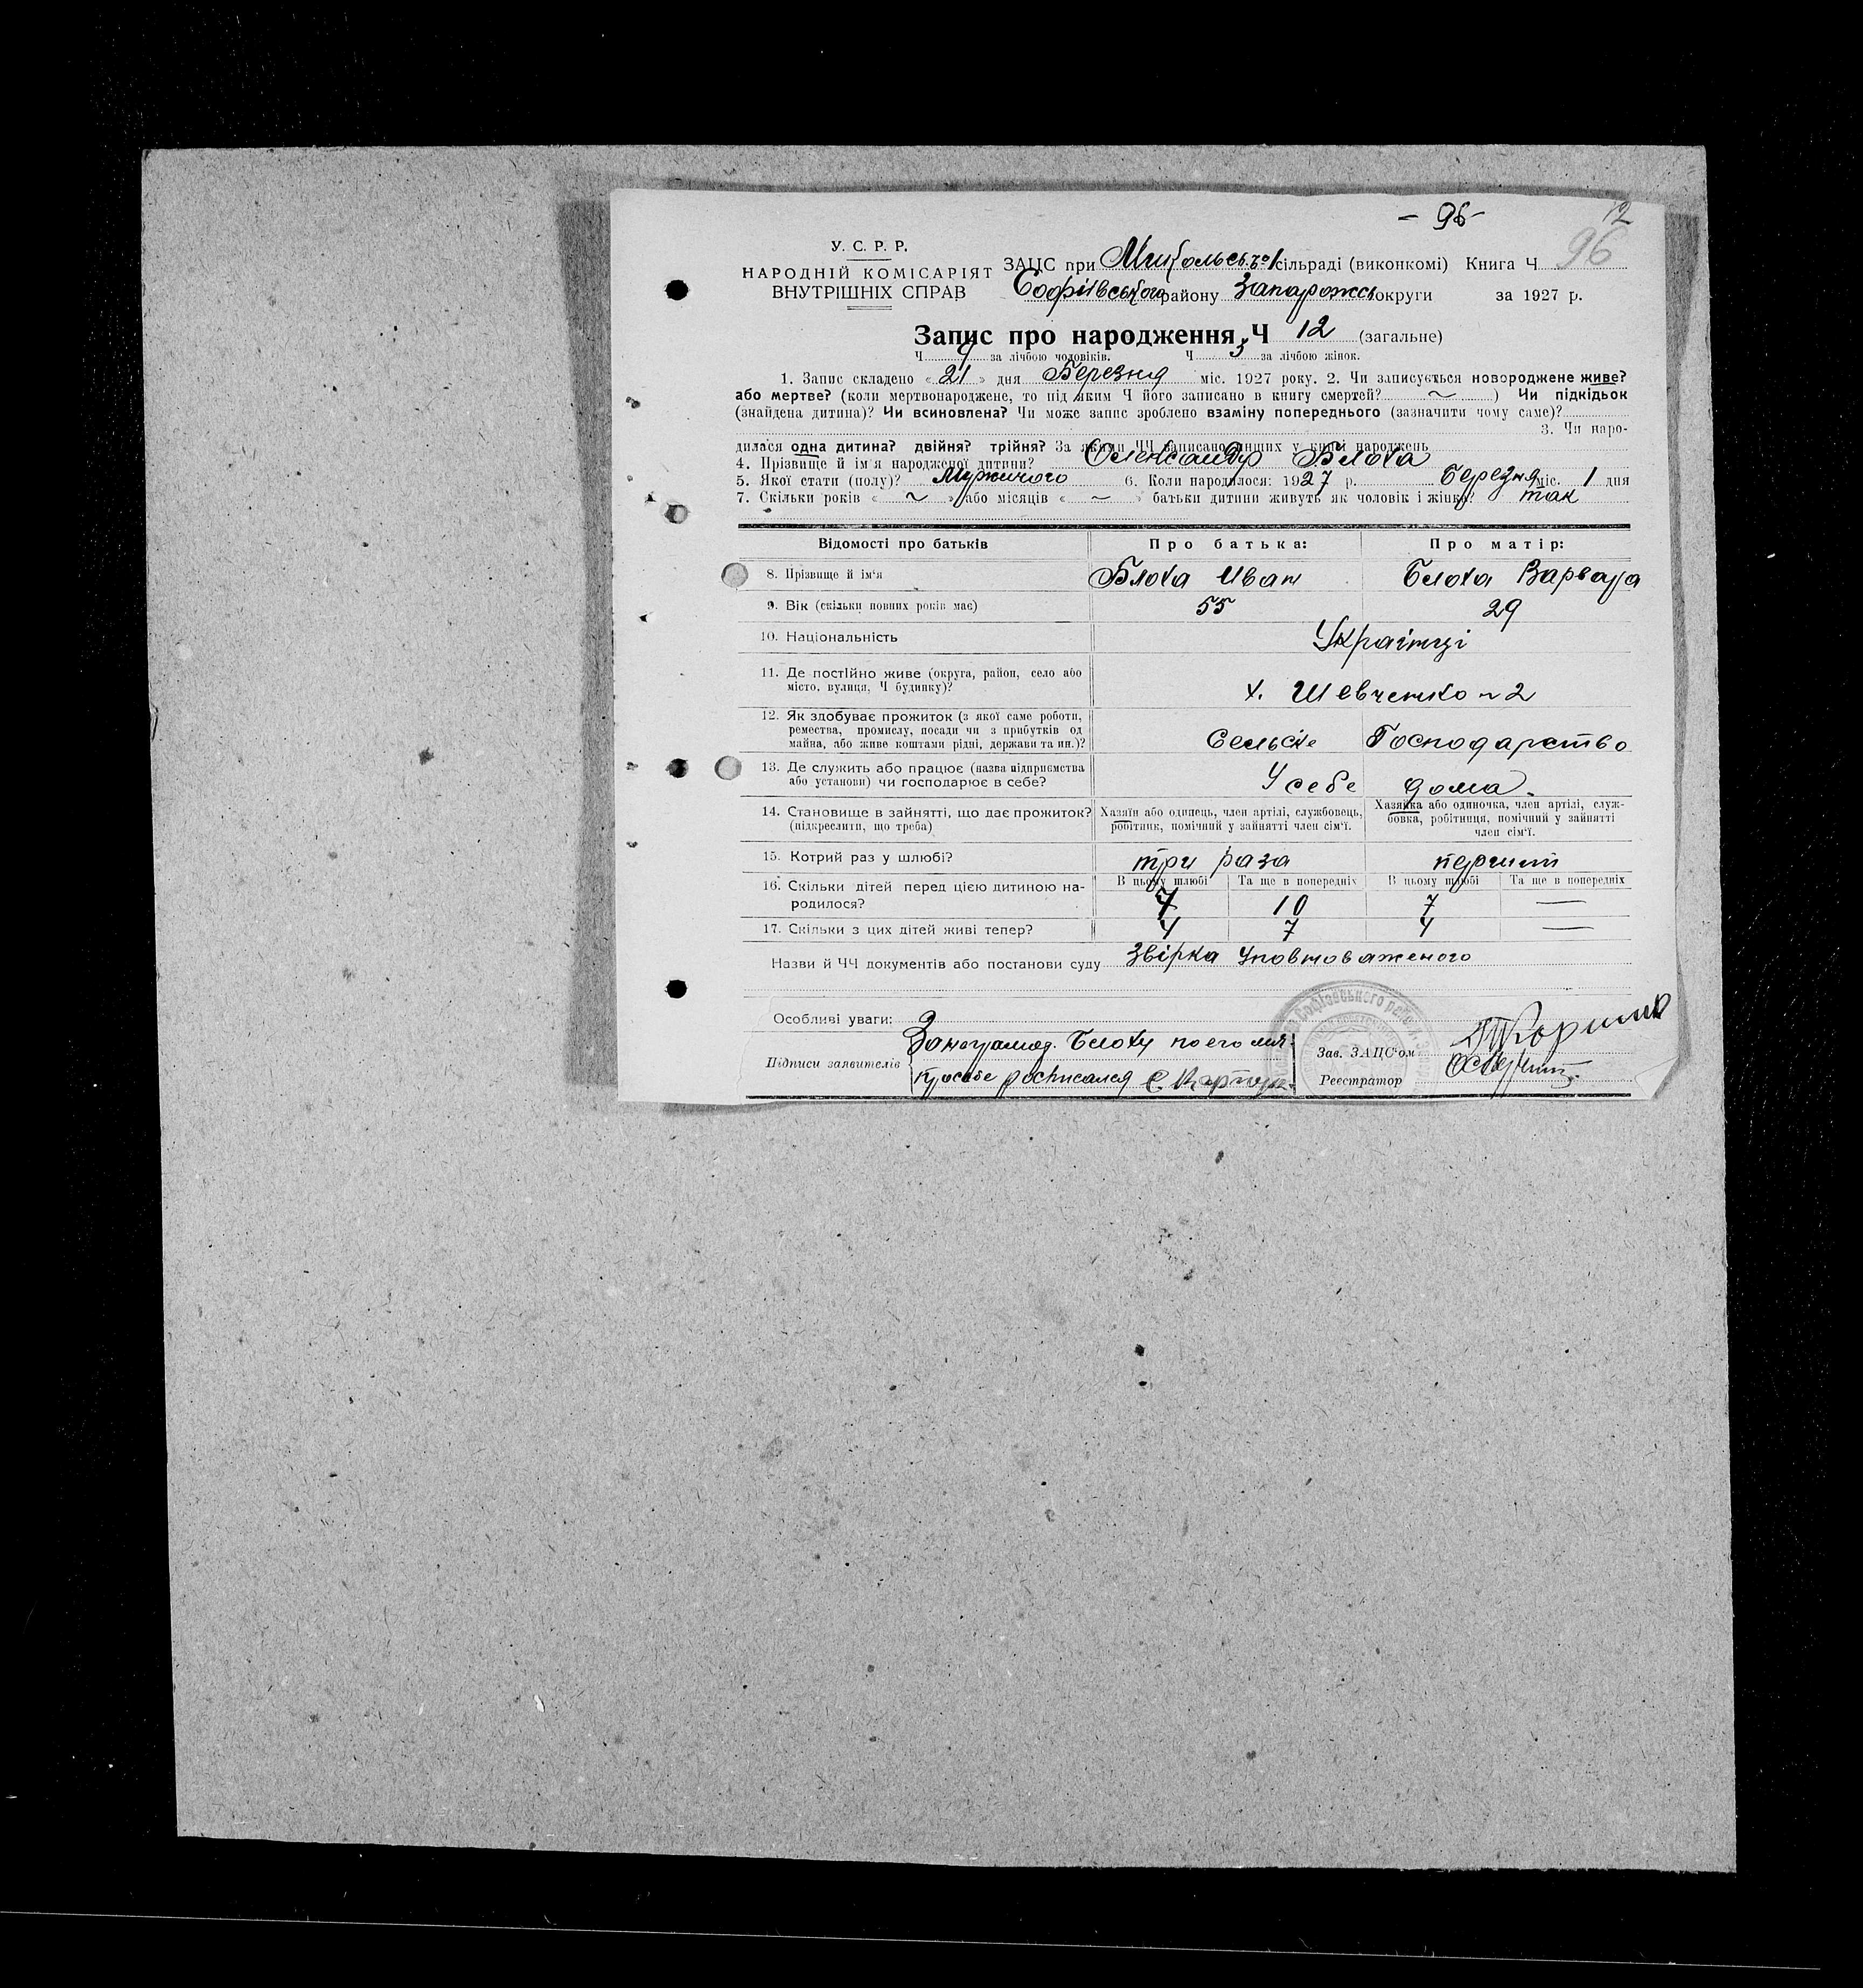 – 96 –
12
96
У. С. Р. Р.
НАРОДНІЙ КОМІСАРІЯТ
ВНУТРІШНІХ СПРАВ
ЗАЦС при Микольськ. №1 сільраді (виконкомі) Книга Ч
Софіівського району Запарожськ округи за 1927 р.
Запис про народження, Ч 12 (загальне)
Ч 9 за лічбою чоловіків. Ч 3 за лічбою жінок.
1. Запис складено « 21 » дня Березня міс. 1927 року. 2. Чи записується новороджене живе?
або мертве? (коли мертвонароджене, то під яким Ч його записано в книгу смертей? ~ ) Чи підкідьок
(знайдена дитина)? Чи всиновлена? Чи може запис зроблено взаміну попереднього (зазначити чому саме)?
3. Чи наро-
дилася одна дитина? двійня? трійня? За якими ЧЧ записано инших у книзі народжень
4. Прізвище й ім'я народженої дитини? Олександр Блоха
5. Якої стати (полу)? Мужичого 6. Коли народилося: 1927 р. Березня міс. 1 дня
7. Скільки років « ~ » або місяців « ~ » батьки дитини живуть як чоловік і жінка? так
Відомості про батьків Про батька: Про матір:
8. Прізвище й ім'я Блоха Иван Блоха Варвара
9. Вік (скільки повних років має) 55 29
10. Національність Українці
11. Де постійно живе (округа, район, село або
місто, вулиця, Ч будинку)? х. Шевченко №2
12. Як здобуває прожиток (з якої саме роботи,
ремества, промислу, посади чи з прибутків од
майна, або живе коштами рідні, держави та ин.)? Сельске Господарство
13. Де служить або працює (назва підприємства
або установи) чи господарює в себе? У себе дома.
14. Становище в зайнятті, що дає прожиток? Хазяїн або одинець, член артілі, службовець, Хазяйка або одиночка, член артілі, служ-
(підкреслити, що треба) робітник, помічний у зайнятті член сім'ї. бовка, робітниця, помічний у зайнятті
член сім'ї.
15. Котрий раз у шлюбі? три раза первий
16. Скільки дітей перед цією дитиною на- В цьому шлюбі Та ще в попередніх В цьому шлюбі Та ще в попередніх
родилося? 7 10 7 —
17. Скільки з цих дітей живі тепер? 4 7 4 —
Назви й ЧЧ документів або постанови суду Звірка Уповноваженого
Особливі уваги:
За Блоху по его
Підписи заявителів просьбе росписался
Зав. ЗАЦС'ом
Реєстратор